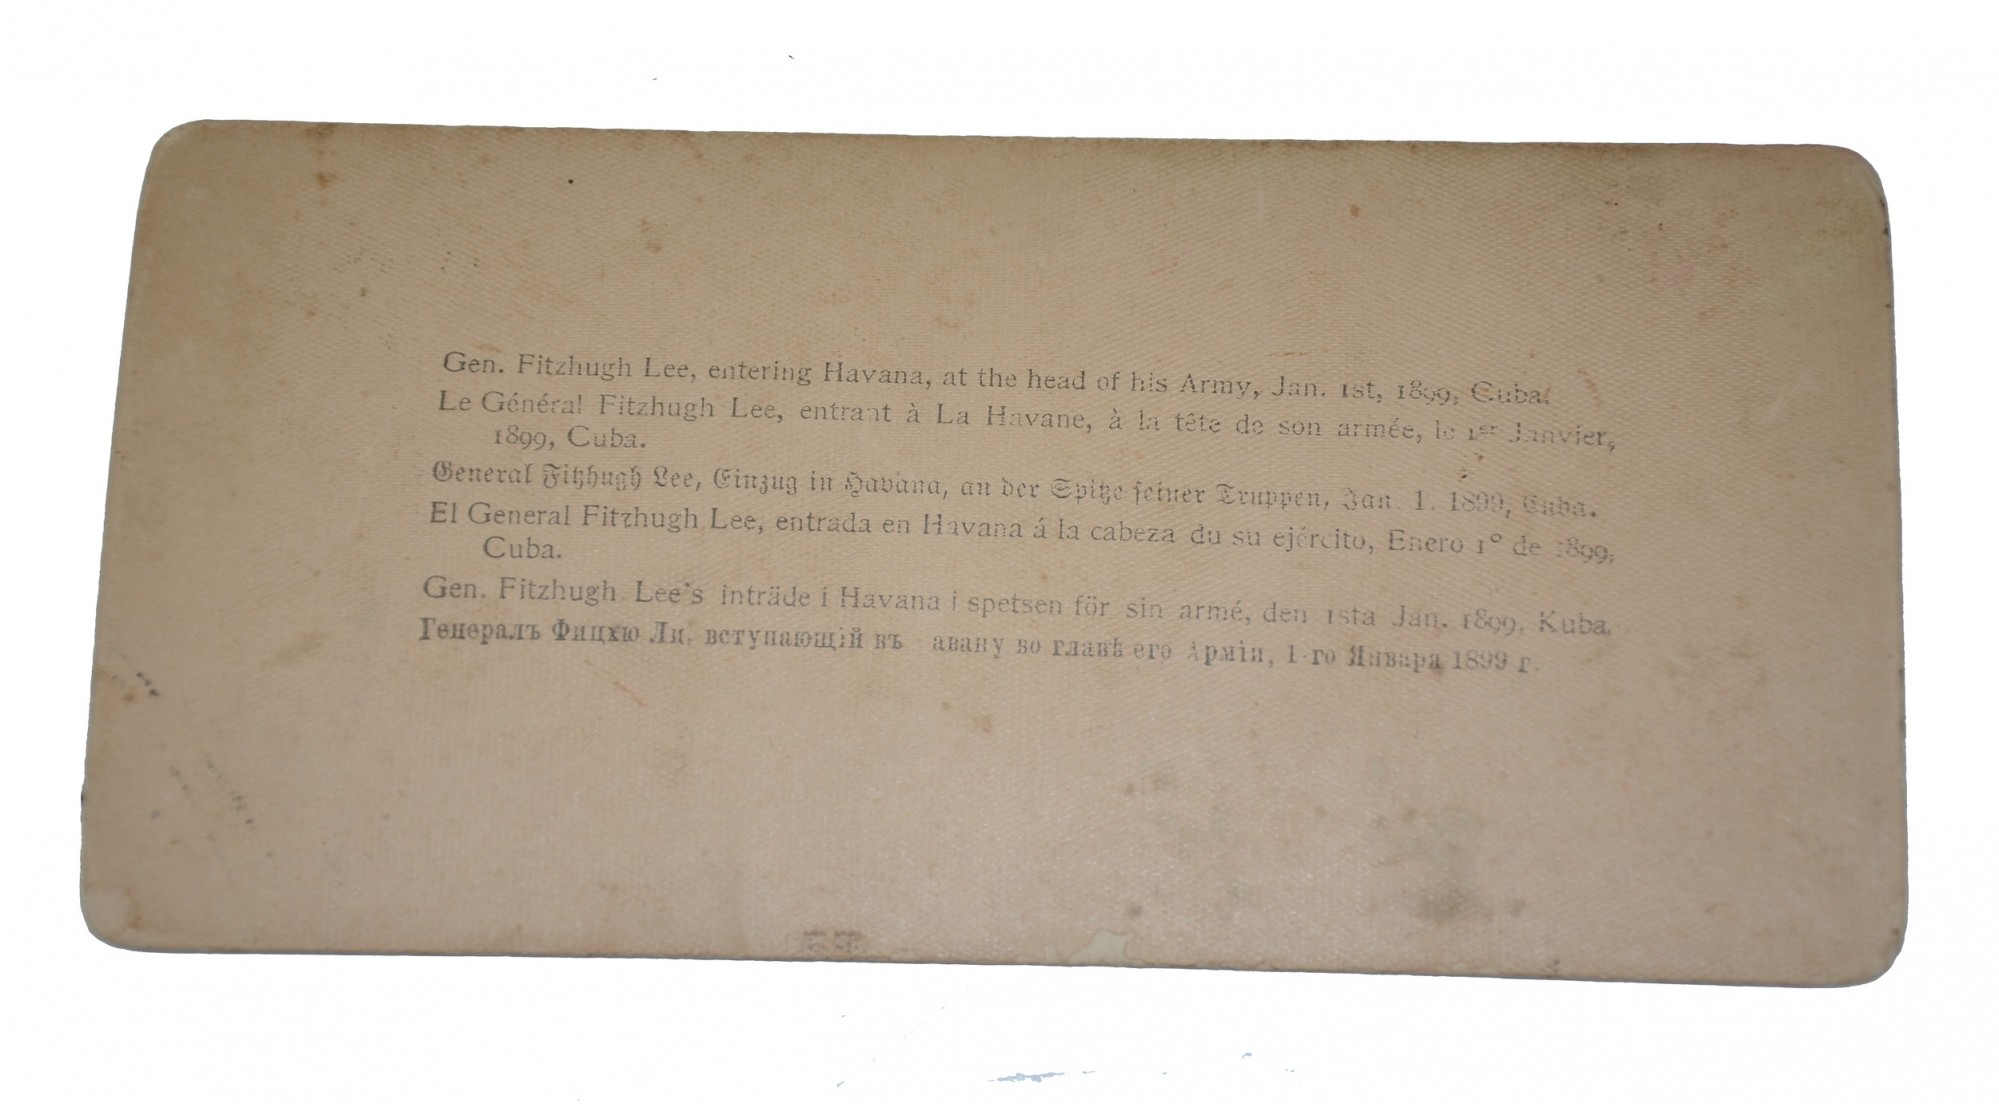 Gen. Fitzhugh Lee, entering Havana, at the head of his Army, Jan. 1st, 1899, Cuba.
Le Général Fitzhugh Lee, entrant à La Havane, à la tête de son armée, le 1er Janvier,
1899, Cuba.
General Fitzhugh Lee, Einzug in Havana, an der Spitze seiner Truppen, Jan. 1. 1899, Cuba.
El General Fitzhugh Lee, entrada en Havana á la cabeza du su ejército, Enero 1º de 1899,
Cuba.
Gen. Fitzhugh Lee's inträde i Havana i spetsen för sin armé, den 1sta Jan. 1899, Kuba.
Генералъ Фицхю Ли, вступающій въ авану во главѣ его Арміи, 1-го Января 1899 г.